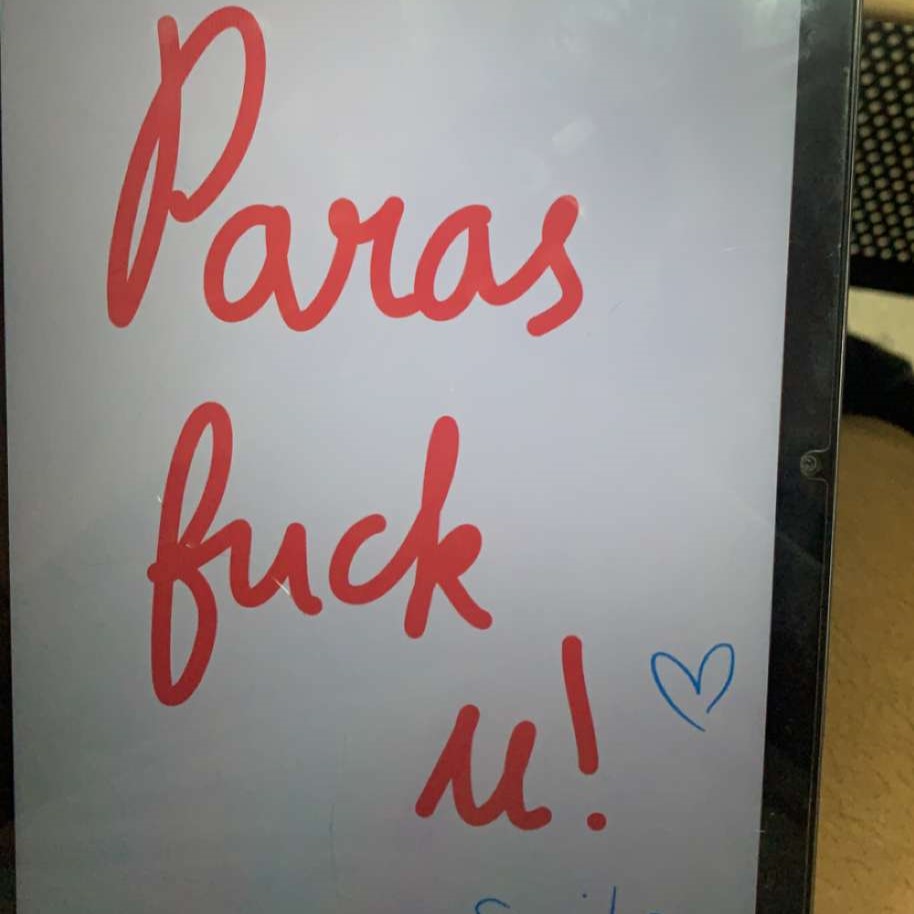 Paras
fuck
u!